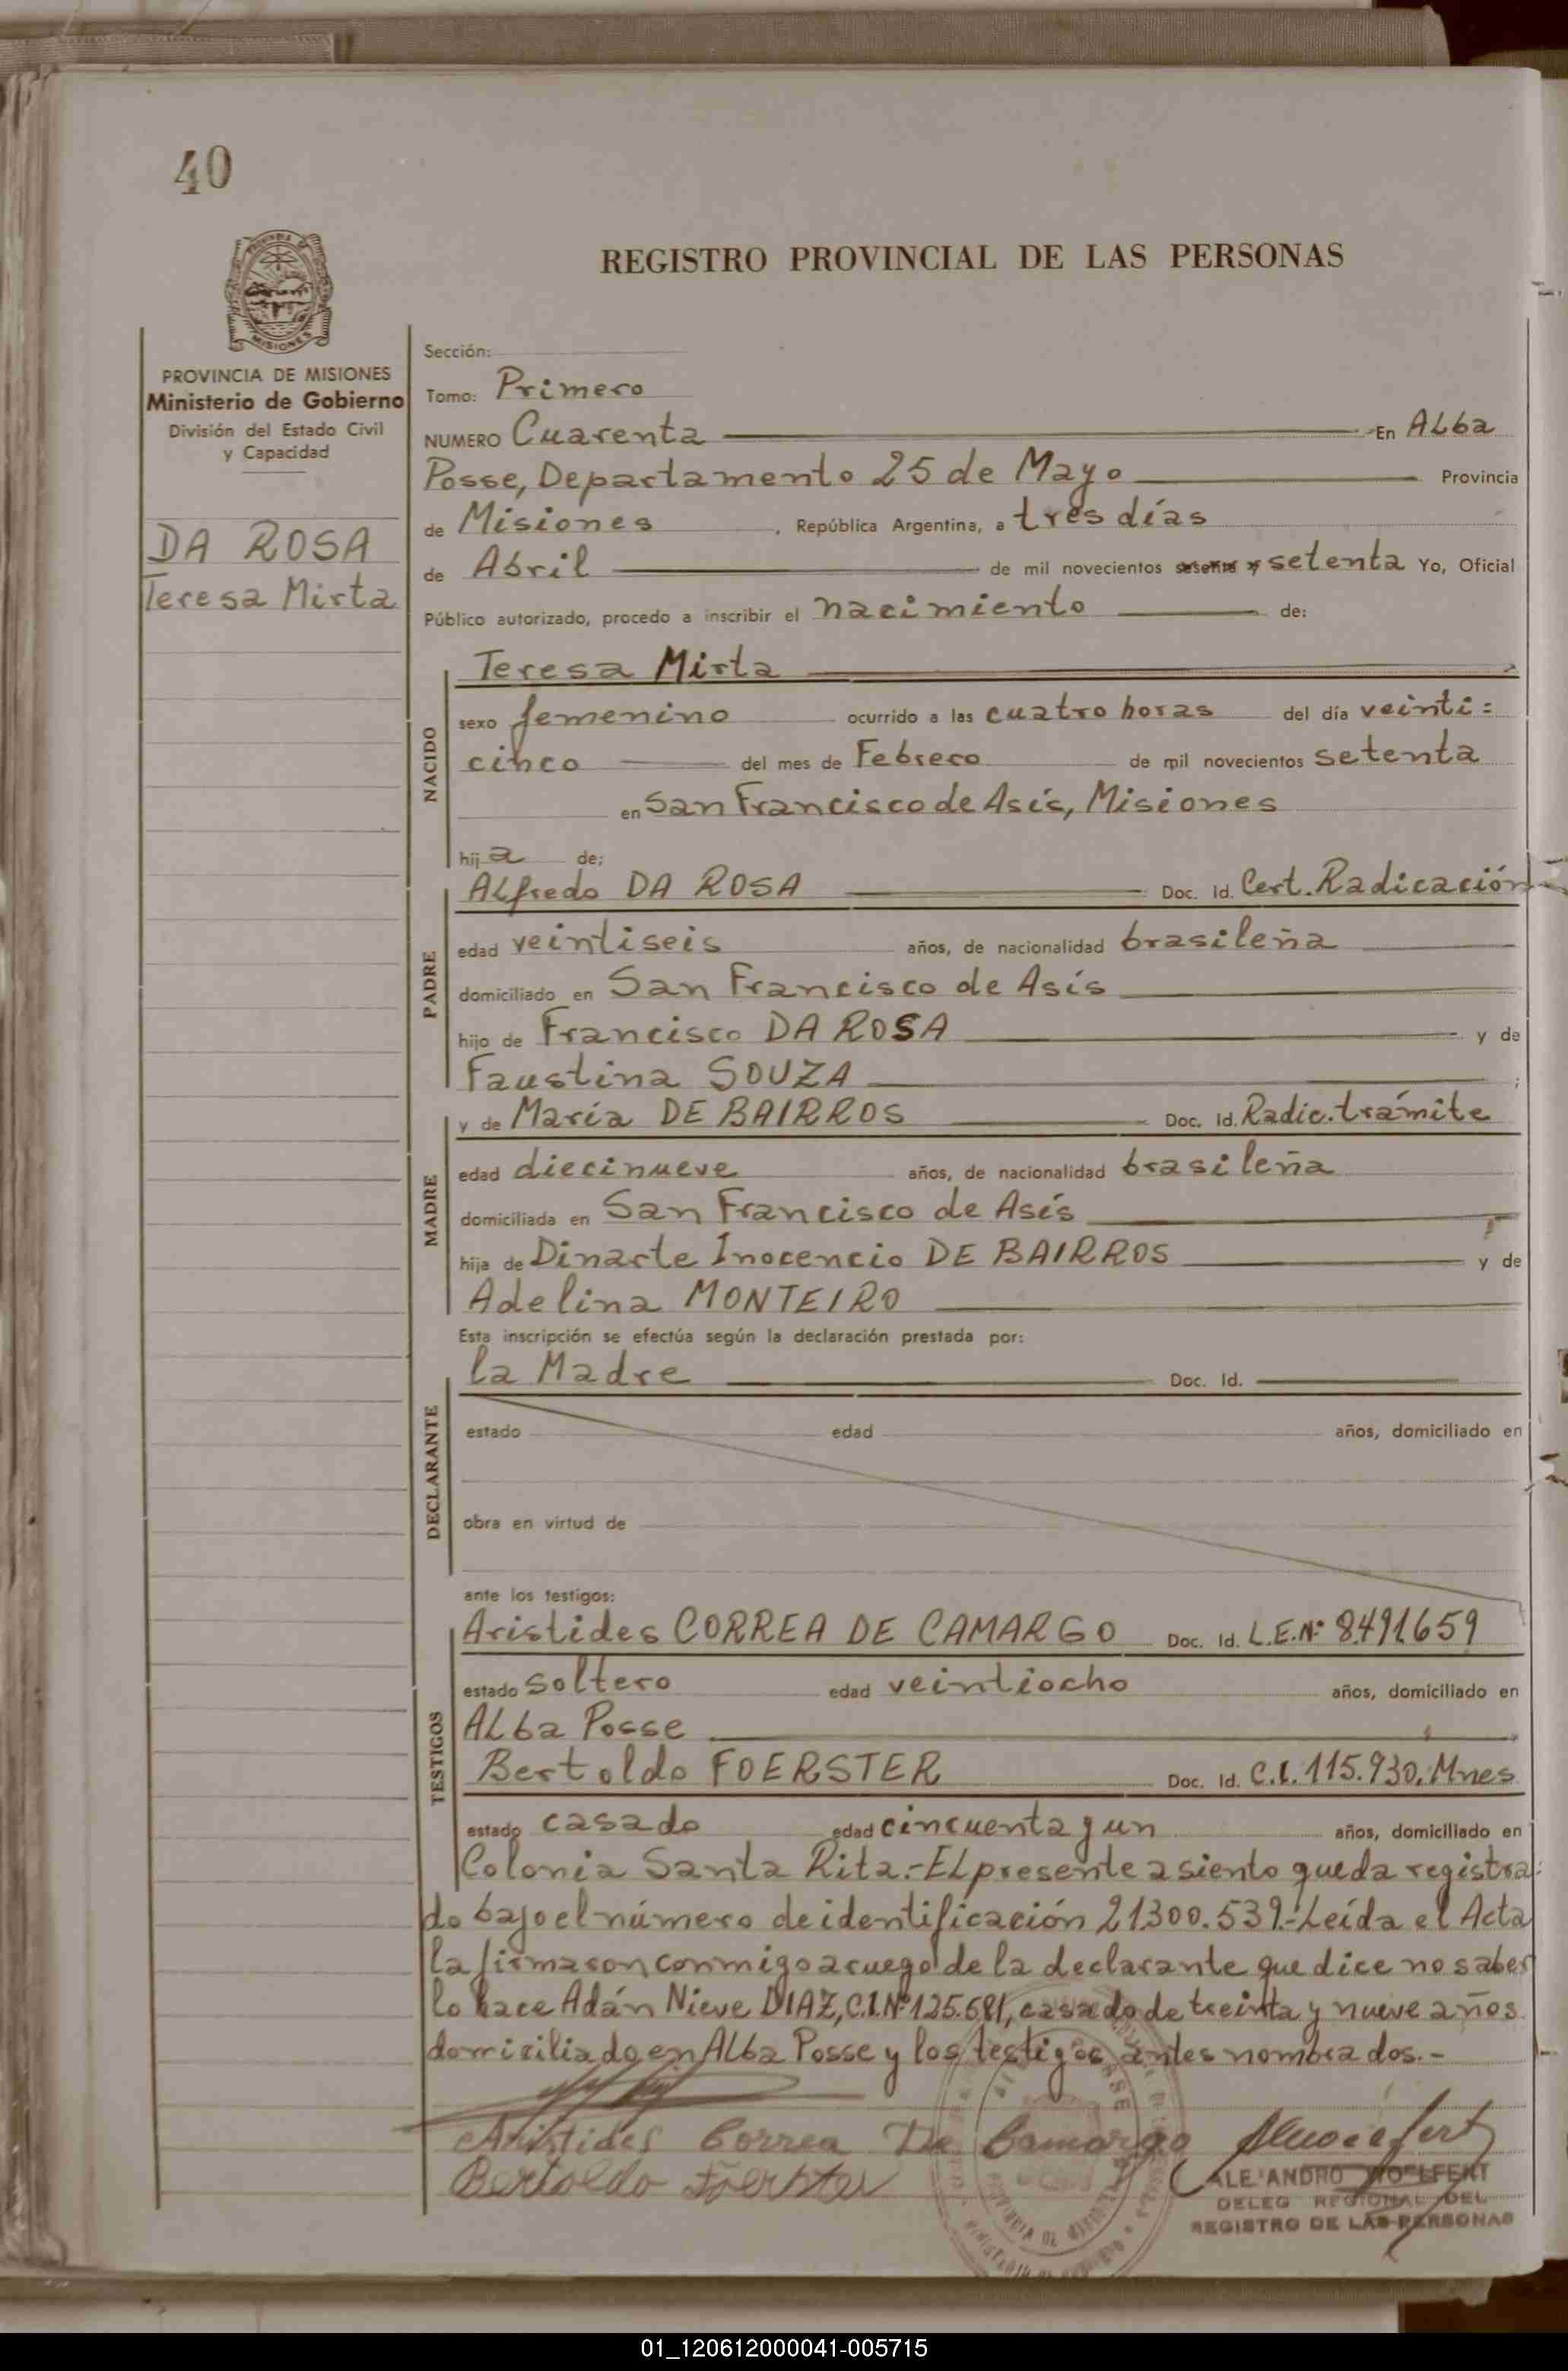 40
REGISTRO PROVINCIAL DE LAS PERSONAS
MISIONES
PROVINCIA DE MISIONES
Ministerio de Gobierno
División del Estado Civil
y Capacidad
DA ROSA
Teresa Mirta
Sección:
Tomo: Primero
NUMERO Cuarenta En Alba
Posse, Departamento 25 de Mayo Provincia
de Misiones, República Argentina, a tres días
de Abril de mil novecientos sesenta y setenta Yo, Oficial
Público autorizado, procedo a inscribir el nacimiento de:
NACIDO
Teresa Mirta
sexo femenino ocurrido a las cuatro horas del día veinti=
cinco del mes de Febrero de mil novecientos setenta
en San Francisco de Asís, Misiones
hija de:
PADRE
Alfredo DA ROSA Doc. Id. Cert. Radicación
edad veintiseis años, de nacionalidad brasileña
domiciliado en San Francisco de Asís
hijo de Francisco DA ROSA y de
Faustina SOUZA ;
MADRE
y de María DE BAIRROS Doc. Id. Radic. trámite
edad diecinueve años, de nacionalidad brasileña
domiciliada en San Francisco de Asís
hija de Dinarte Inocencio DE BAIRROS y de
Adelina MONTEIRO
Esta inscripción se efectúa según la declaración prestada por:
DECLARANTE
la Madre Doc. Id.
estado edad años, domiciliado en
obra en virtud de
ante los testigos:
TESTIGOS
Aristides CORREA DE CAMARGO Doc. Id. L.E.Nº 8.491.659
estado soltero edad veintiocho años, domiciliado en
Alba Posse
Bertoldo FOERSTER Doc. Id. C.I. 115.930. Mnes
estado casado edad cincuenta y un años, domiciliado en
Colonia Santa Rita.- El presente asiento queda registra=
do bajo el número de identificación 21.300.539.- Leída el Acta
la firmaron conmigo a ruego de la declarante que dice no saber
lo hace Adán Nieve DIAZ, C.I.Nº 125.681, casado de treinta y nueve años
domiciliado en Alba Posse y los testigos antes nombrados.-
Aristides Correa De Camargo
Bertoldo Foerster
ALEJANDRO WOELFERT
DELEG REGIONAL DEL
REGISTRO DE LAS PERSONAS
01_120612000041-005715